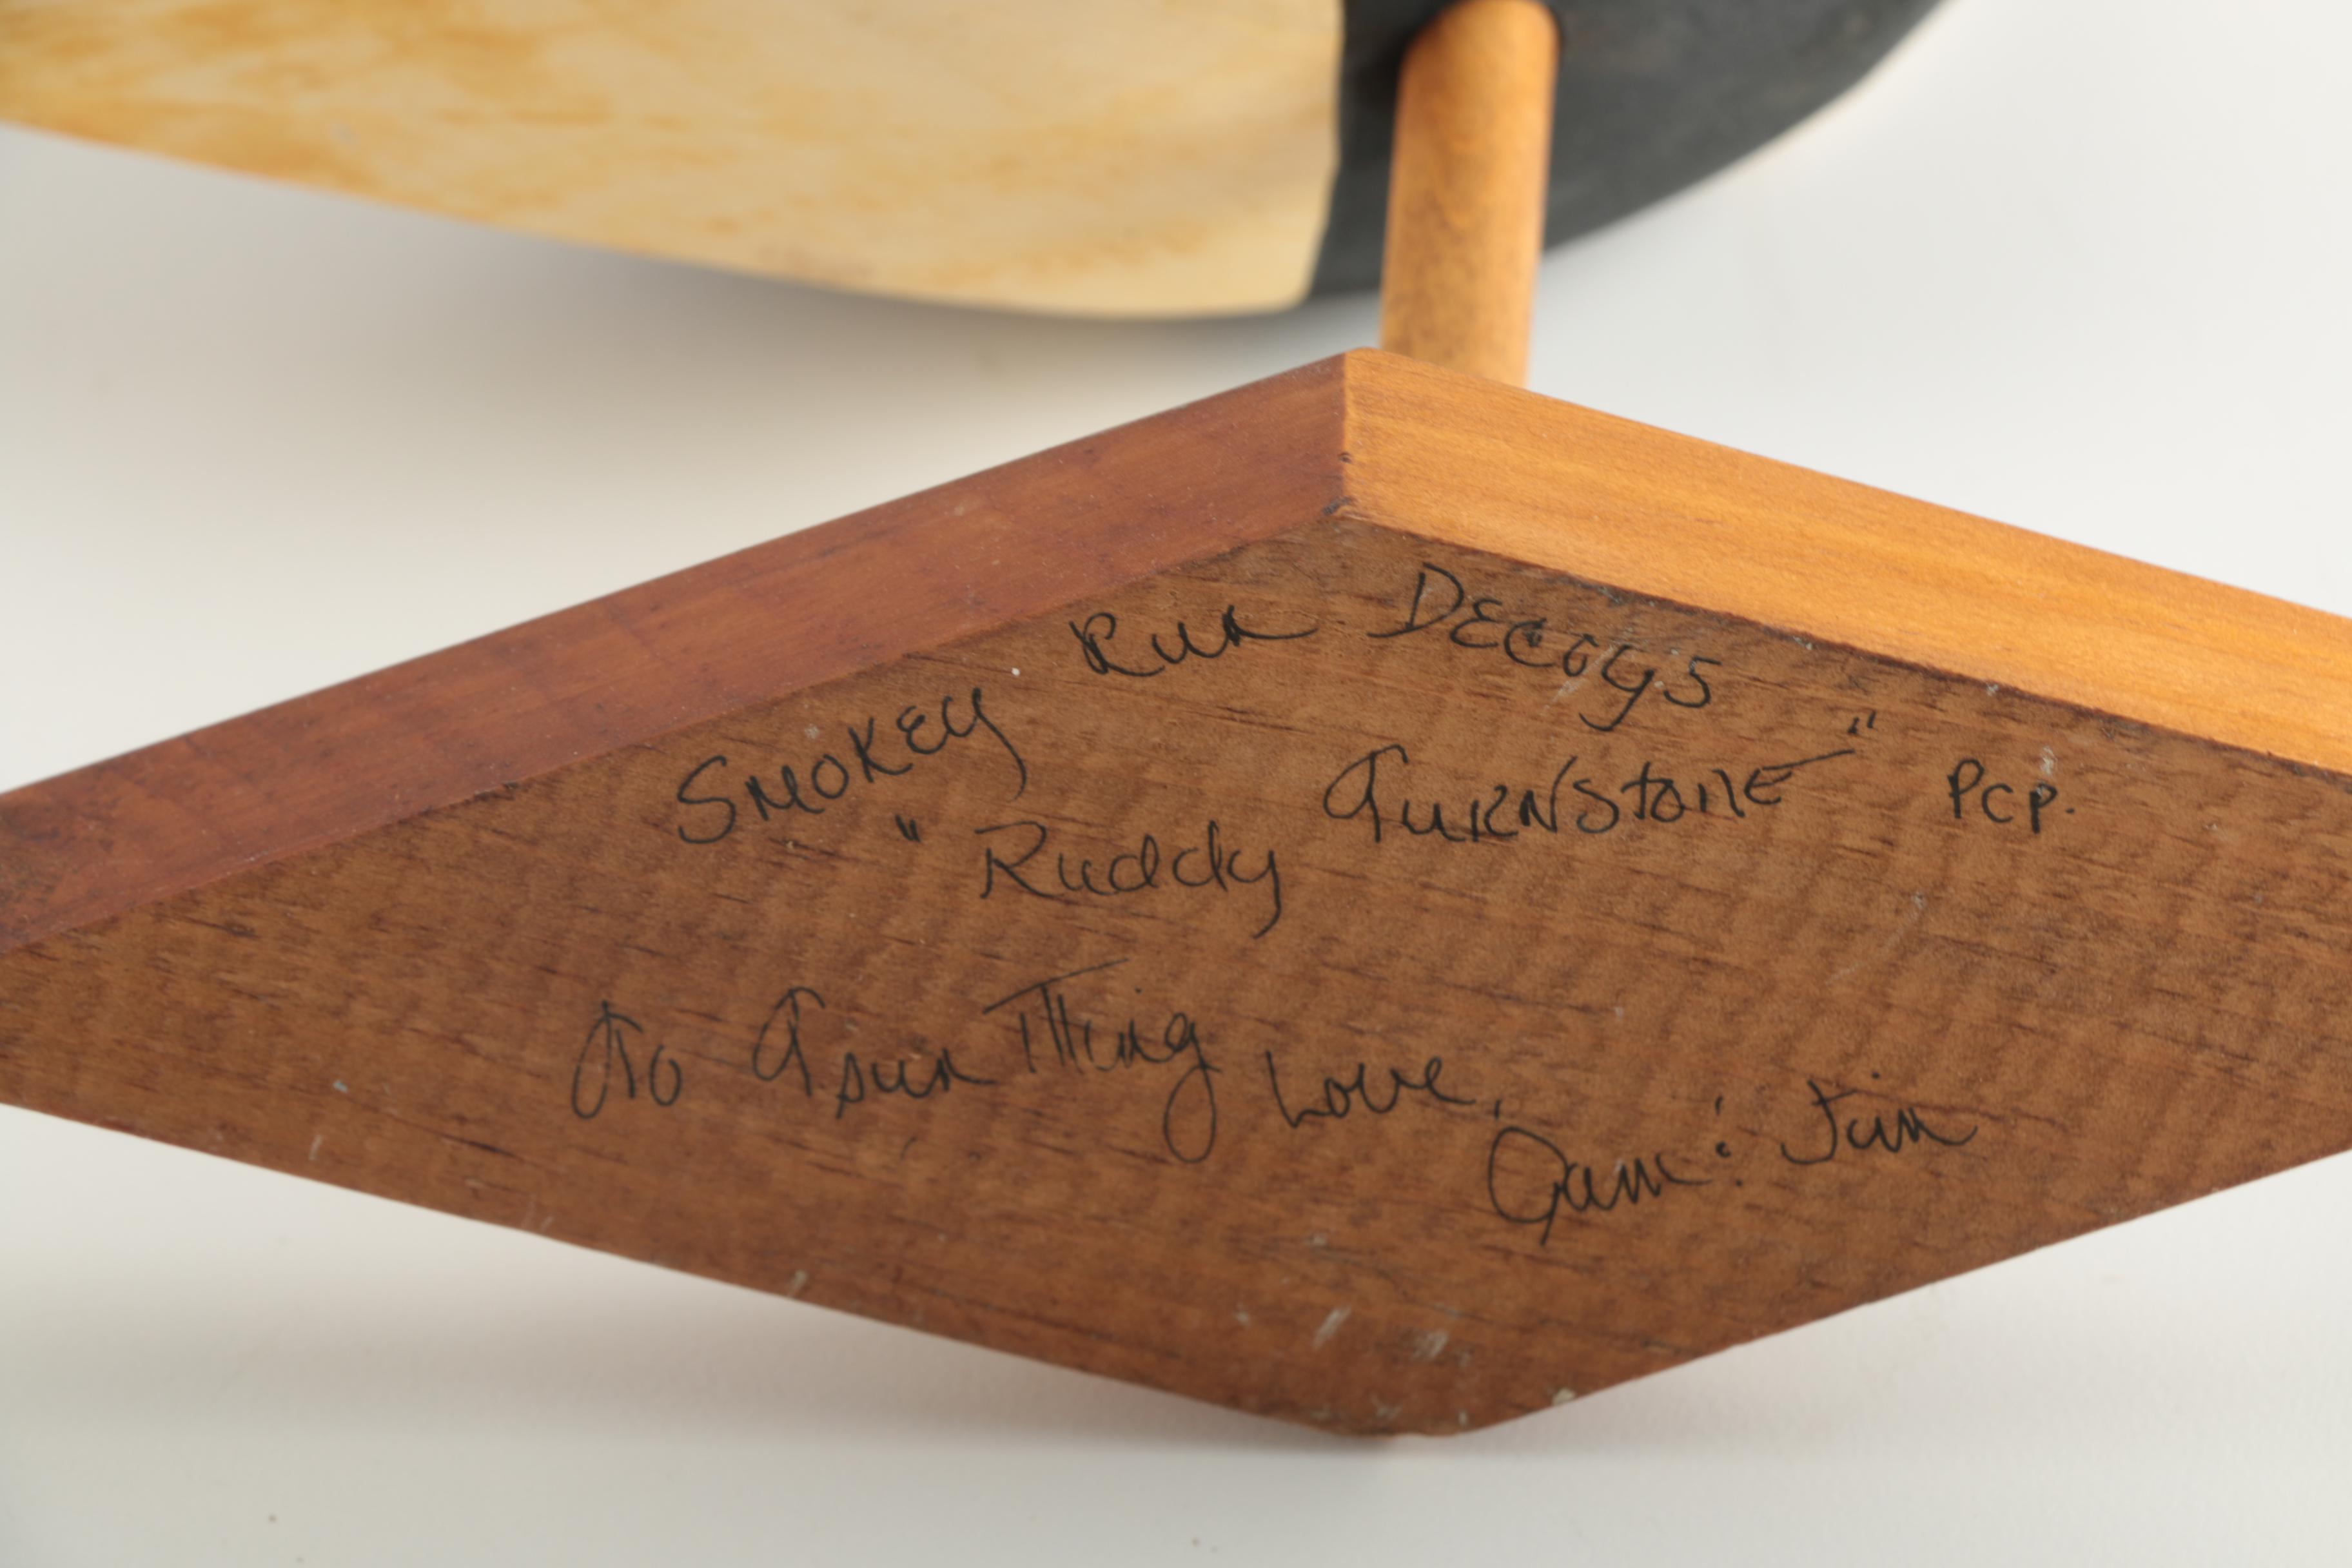 Smokey Run Decoys
"Ruddy Turnstone" PCP.
To Tsun Thing Love,
Jim